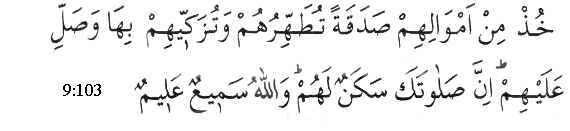 خُذْ مِنْ اَمْوَالِهِمْ صَدَقَةً تُطَهِّرُهُمْ وَتُزَكِّيْهِمْ بِهَا وَصَلِّ
عَلَيْهِمْ ؕ اِنَّ صَلٰوتَكَ سَكَنٌ لَهُمْ ؕ وَاللّٰهُ سَمِيْعٌ عَلِيْمٌ 9:103